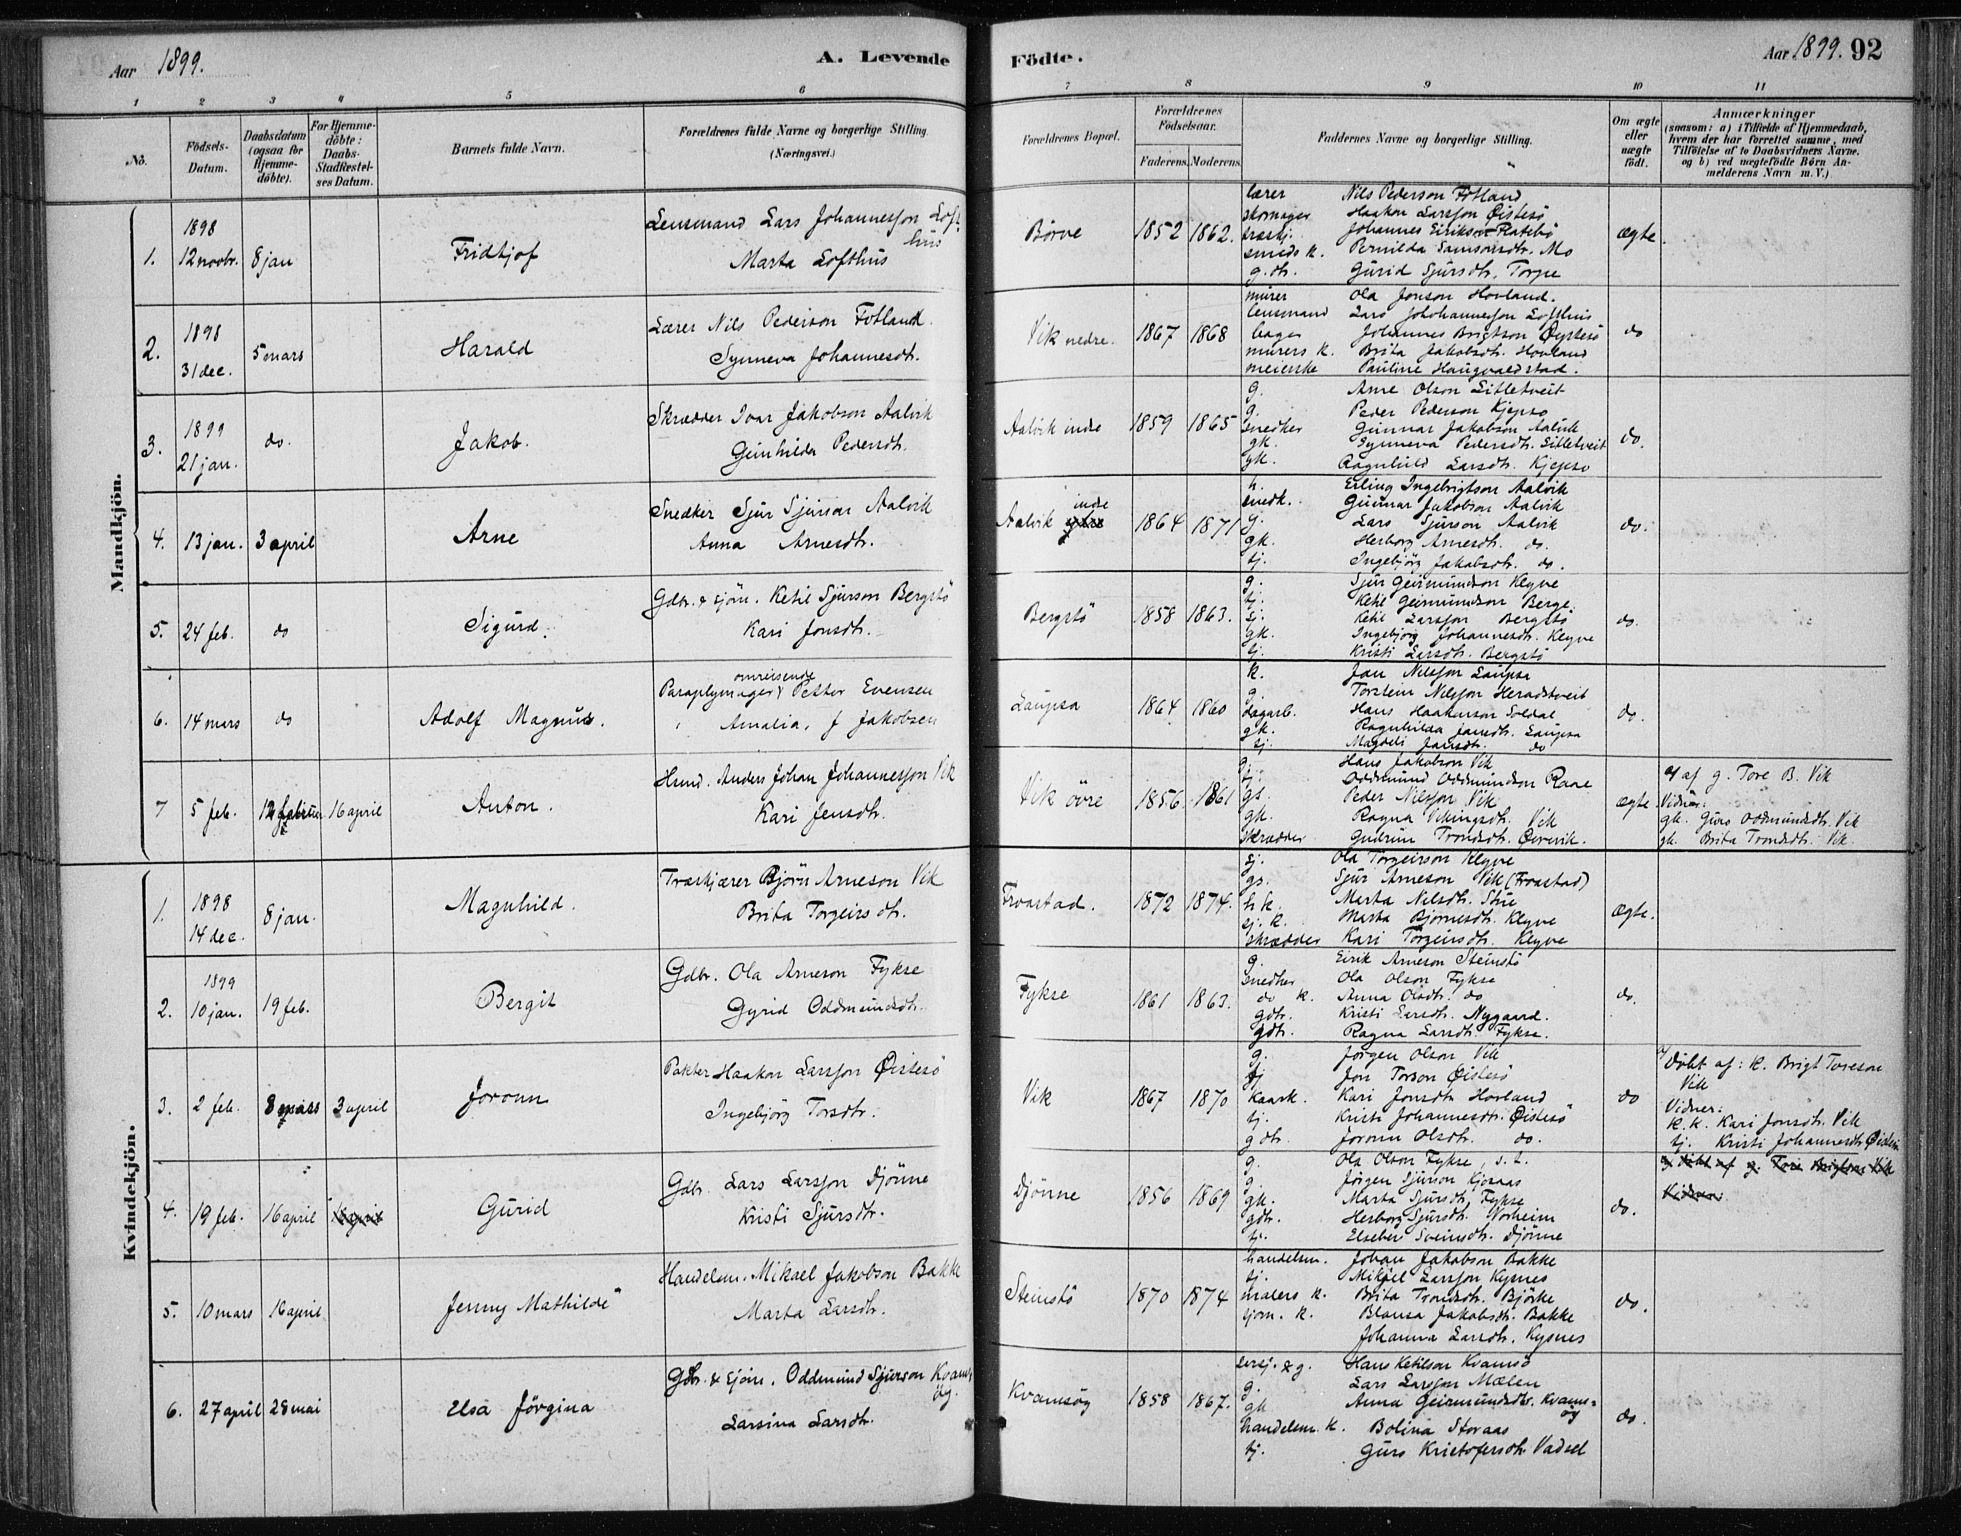 Aar 1899.
A. Levende
Födte.
Aar 1899. 92
1 2 3 4 5 6 7 8 9 10 11
No.
Födsels-Datum.
Daabsdatum (ogsaa for Hjemme-döbte).
For Hjemme-döbte: Daabs-Stadfæstel-ses Datum.
Barnets fulde Navn.
Forældrenes fulde Navne og borgerlige Stilling.
(Næringsvei.)
Forældrenes Bopæl.
Forældrenes Födselsaar.
Faderens. Moderens.
Faddernes Navne og borgerlige Stilling.
Om ægte eller uægte födt.
Anmærkninger
(saasom: a) i Tilfælde af Hjemmedaab,
hvem der har forrettet samme, med
Tilföielse af to Daabsvidners Navne,
og b) ved uegtefödte Börn An-
melderens Navn m. V.)
Mandkjön.
1. 1898 12 novbr. 8 jan Fridtjof
Lensmand Lars Johannesson Loft-
hus
Marta Lofthus
Børve 1852 1862. ægte.
lærer Nils Pederson Fotland
skomager Haakon Larsson Øistesö
træskj. Johannes Eirikson Flatebö
smeds k. Pernilda Samsonsdtr. Mo
g.dtr. Gurid Sjursdtr. Torpe
2. 1898 31 dec. 5 mars Harald
Lærer Nils Pederson Fotland.
Synneva Johannesdtr.
Vik nedre. 1867 1868 do
murer Ola Jonson Hovland.
lensmand Lars Johohannesson Lofthus
bager Johannes Brigtson Øystesö
murers k. Brita Jakobsdtr. Hovland
meierske Pauline Haugvaldstad.
3. 1899 21 jan. do. Jakob.
Skrædder Ivar Jakobson Aalvik
Gunhilda Pedersdtr.
Aalvik indre 1859 1865 do.
g. Arne Olson Litletveit
g. Peder Pederson Kjepso
snedker Gunnar Jakobson Aalvik
gk. Synneva Pedersdtr. Litletveit
gk. Ragnhild Larsdtr. Kjepso
4. 13 jan. 3 april Arne
Snedker Sjur Sjurson Aalvik
Anna Arnesdtr.
Aalvik indre 1864 1871 do.
h. Erling Ingebrigtson Aalvik
snedk. Gunnar Jakobson Aalvik
g. Lars Sjurson Aalvik
gk. Herborg Arnesdtr. do.
tj. Ingebjörg Jakobsdtr. do.
5. 24 feb. do Sigurd.
Gdbr. & sjöm. Ketil Sjurson Bergstö
Kari Jonsdtr.
Bergstö 1858 1863. do.
g. Sjur Geirmundson Klyve
tj. Ketil Geirmundson Berge.
sj. Ketil Larsson Bergstö
gk. Ingebjörg Johannesdtr. Klyve
tj. Kristi Larsdtr. Bergstö
6. 14 mars do Adolf Magnus.
omreisende
Paraplymager Petter Evensen
Amalia, f Jakobsen
Laupsa 1864 1860 do.
k. Jan Nilsson Laupsa
g. Torstein Nilsson Heradstveit
dagarb. Hans Haakonson Soldal
gk. Ragnhilda Jansdtr. Laupsa
tj. Magdeli Jansdtr. do
7 5 feb. 12 februar 16 april Anton.
Husmd. Anders Johan Johannesson Vik
Kari Jensdtr.
Vik övre 1856 1861 ægte
g. Hans Jakobson Vik
tj. Oddmund Oddmundson Raae
gs. Peder Nilsson Vik
gk. Ragna Vikingsdtr. Vik
skrædder Gudrun Trondsdtr. Øvrevik.
af g. Tore B. Vik
Vidner:
gk. Guro Oddmundsdtr. Vik
gk. Brita Trondsdtr. Vik
Kvindekjön.
1. 1898 14 dec. 8 jan. Magnhild.
Træskjærer Björn Arneson Vik
Brita Torgeirsdtr.
Froastad. 1872 1874. ægte.
sj. Ola Torgeirson Klyve
gs. Sjur Arneson Vik (Froastad)
h k. Marta Nilsdtr. Stue
sj. k. Marta Bjornesdtr. Klyve
skrædder Kari Torgeirsdtr. Klyve
2. 1899 10 jan. 19 feb. Bergit
Gdbr. Ola Arneson Fykse
Gyrid Oddmundsdtr.
Fykse 1861 1863. do.
g. Eirik Arneson Steinstö
snedker Ola Olson Fykse
do k. Anna Olsdtr. do
gdtr. Kristi Larsdtr. Nygaard.
gdtr. Ragna Larsdtr. Fykse.
3. 2 feb. 8 mars 3 april Jorunn
Pakter Haakon Larsson Øistesö
Ingebjörg Torsdtr.
Vik 1867 1870 do
g. Jörgen Olson Vik
tj Jon Torson Øistesö
Kaark. Kari Jonsdtr. Hovland
tj. Kristi Johannesdtr. Øistesö
gdtr. Jorunn Olsdtr. do.
Döbt af: k. Brigt Toreson
Vik
Vidner:
k.k. Kari Jonsdtr. Vik
tj. Kristi Johannesdtr. Øistesö
4. 19 feb. 16 april 16 april Gurid
Gdbr. Lars Larsson Djönne
Kristi Sjursdtr.
Djönne 1856 1869 do.
g. Ola Olson Fykse, s. t.
g. Jörgen Sjurson Kjosaas
gk. Marta Sjursdtr. Fykse
gdtr. Herborg Sjursdtr. Norheim
tj. Elseber Sveinsdtr. Djönne
döbt af g. Tore Brigtson Vik
Vidner:
5. 10 mars 16 april Jenny Mathilde
Handelsm. Mikael Jakobson Bakke
Marta Larsdtr.
Steinstö 1870 1874 do.
handelsm. Johan Jakobson Bakke
tj. Mikjel Larsson Kysnes
malers k. Brita Trondsdtr. Björke
sjom. k. Blansa Jakobsdtr. Bakke
Johanna Larsdtr. Kysnes
6. 27 april 28 mai Elsa Jörgina
Gdbr. & sjöm. Oddmund Sjurson Kvams-
öy.
Larsina Larsdtr.
Kvamsöy 1858 1867. do.
sersj. & g. Hans Ketilson Kvamsö
g. Lars Larsson Mælen
gk Anna Geirmundsdtr. Kvams-
öy
handelsm. k. Bolina Storaas
tj. Guro Kristofersdtr. Vadsel